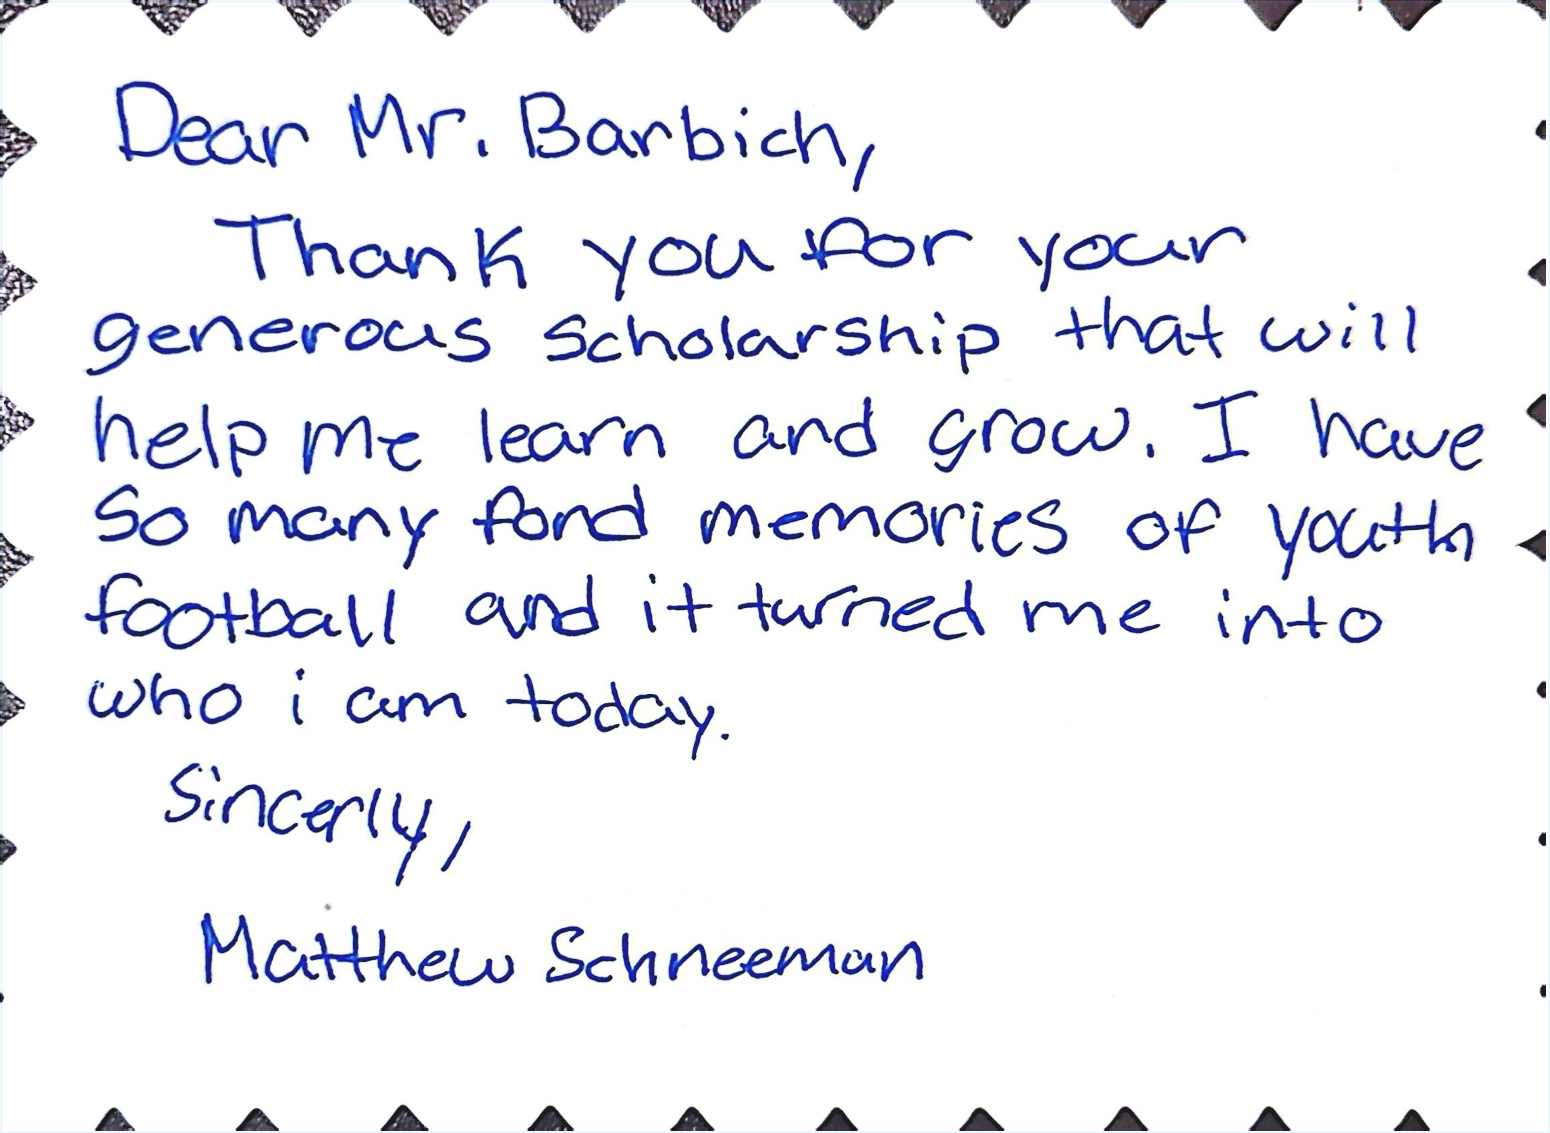 Dear Mr. Barbich,
Thank you for your
generous scholarship that will
help me learn and grow. I have
so many fond memories of youth
football and it turned me into
who i am today.
Sincerly,
Matthew Schneeman